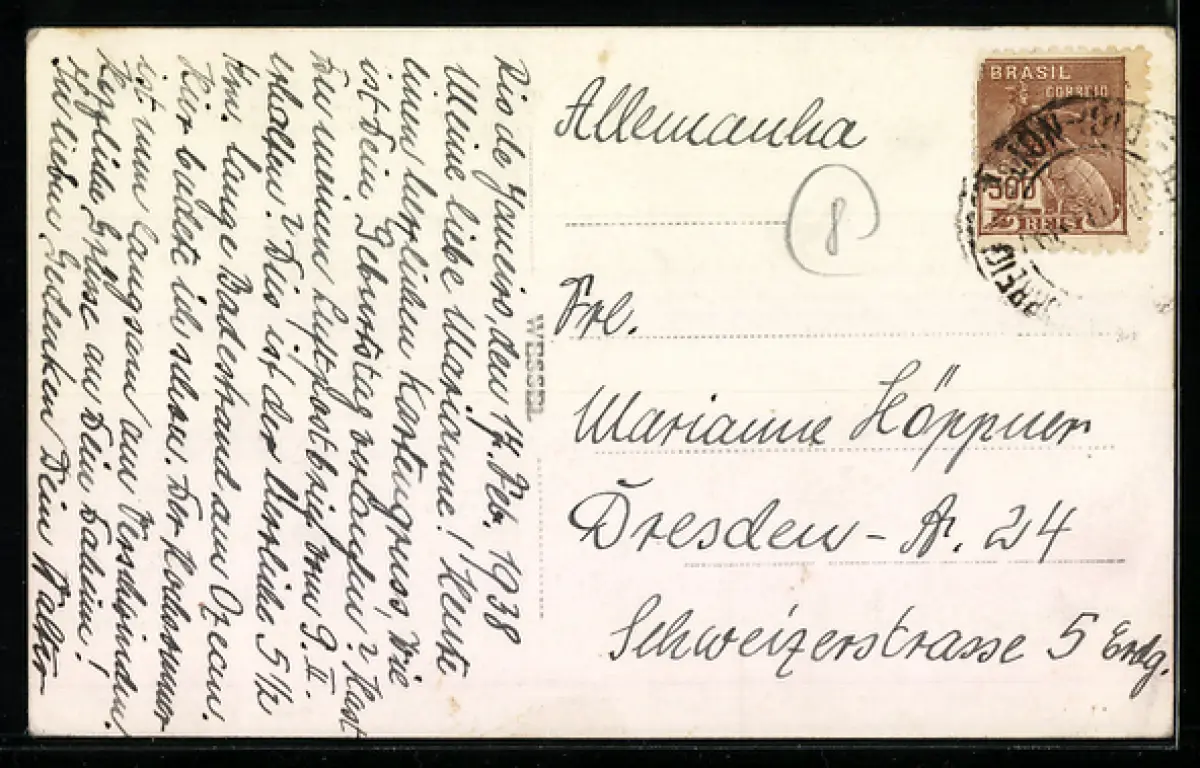 Rio de Janeiro, den 17. Feb. 1938
Meine liebe Marianne! Heute
einen herzlichen Kartengruss, wie
ist Dein Geburtstag verlaufen? Hast
Du meinen Luftpostbrief vom 9. II.
erhalten? Dies ist der herrliche 5 1/2
km. lange Badestrand am Ozean.
Hier badete ich schon. Der Hochsommer
ist nun langsam am Verschwinden.
Herzliche Grüsse an Dein Daheim!
In lieben Gedenken Dein Walter
WESSEL
Allemanha
8
Frl.
Marianne Höppner
Dresden-A. 24
Schweizerstrasse 5 Erdg.
BRASIL
CORREIO
300
REIS